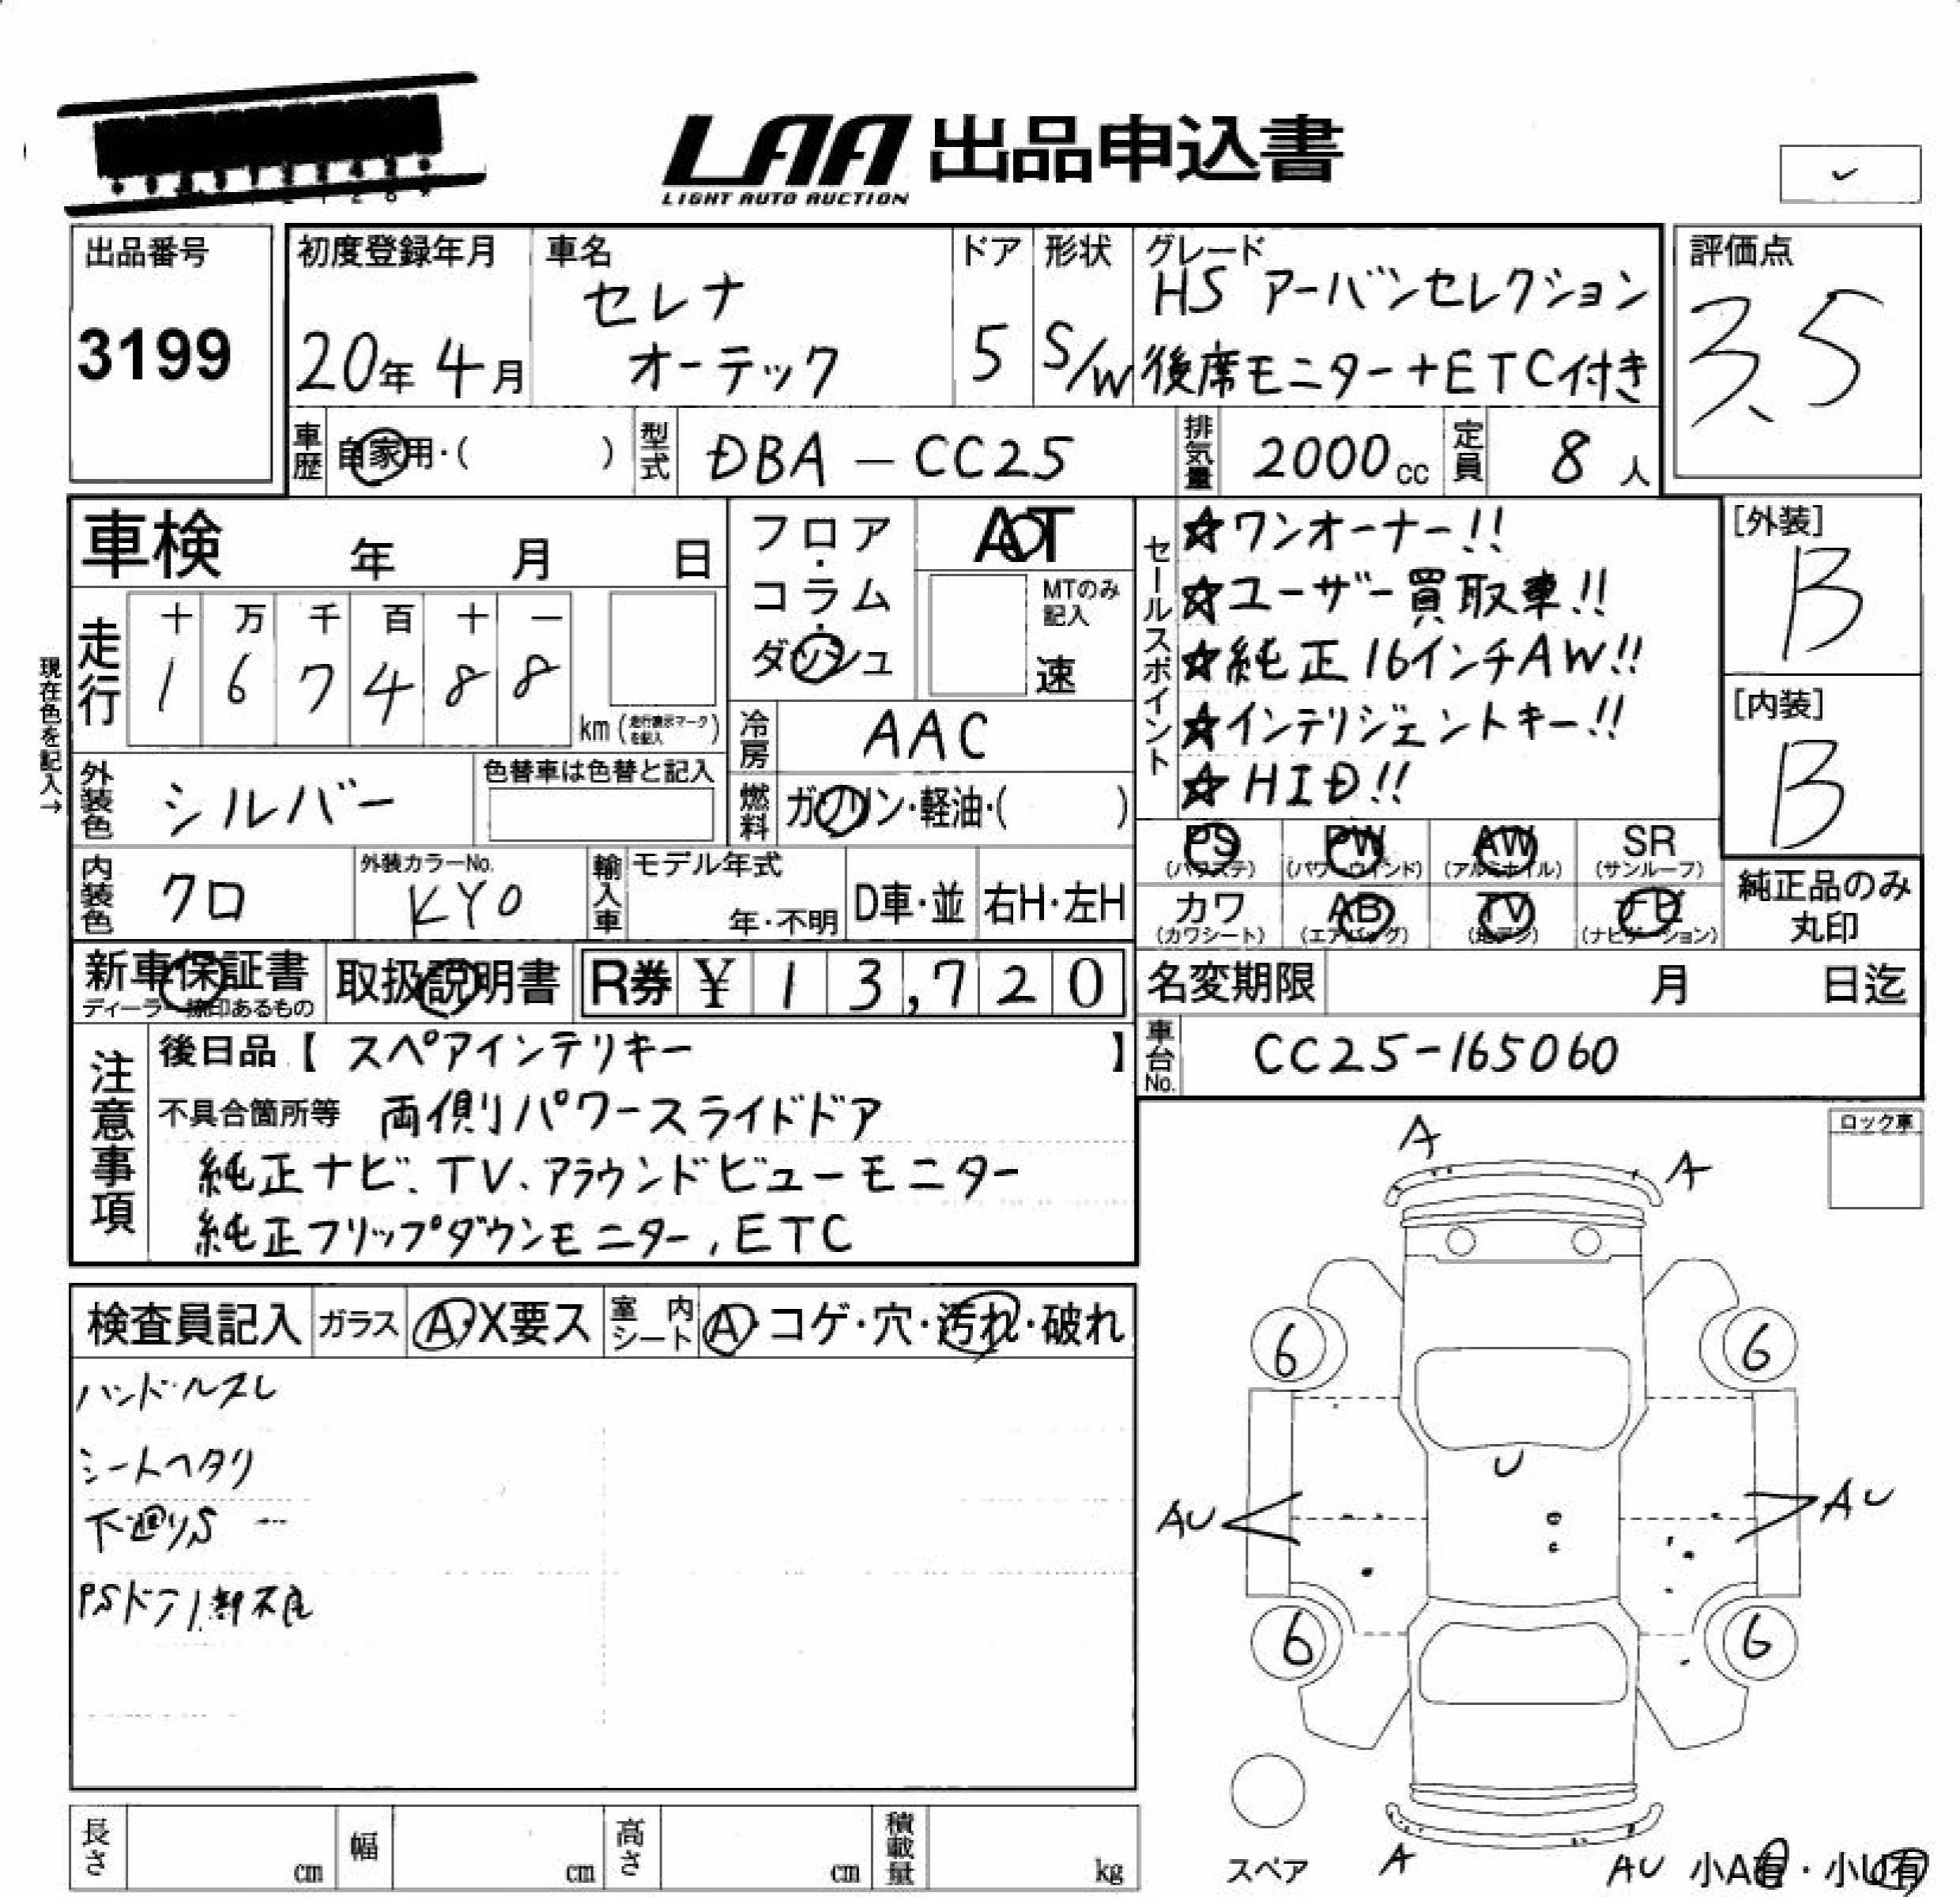 LAA 出品申込書
LIGHT AUTO AUCTION
出品番号
3199
初度登録年月
20年 4月
車名
セレナ
オーテック
ドア
5
形状
S/W
グレード
HS アーバンセレクション
後席モニター+ETC付き
評価点
3.5
車歴
自家用・( )
型式
DBA-CC25
排気量
2000cc
定員
8人
車検 年 月 日
フロア・コラム・ダッシュ
AT
MTのみ記入
速
セールスポイント
☆ワンオーナー!!
☆ユーザー買取車!!
☆純正16インチAW!!
☆インテリジェントキー!!
☆HID!!
[外装]
B
[内装]
B
現在色を記入→
走行
十 万 千 百 十 一
1 6 7 4 8 8
km(走行表示マークを記入)
冷房
AAC
外装色
シルバー
色替車は色替と記入
燃料
ガソリン・軽油・( )
内装色
クロ
外装カラーNo.
KY0
輸入車
モデル年式
年・不明
D車・並
右H・左H
PS (パワステ)
PW (パワーウインド)
AW (アルミホイル)
SR (サンルーフ)
カワ (カワシート)
AB (エアバッグ)
TV (地デジ)
ナビ (ナビゲーション)
純正品のみ
丸印
新車保証書
ディーラー捺印あるもの
取扱説明書
R券 ¥13,720
名変期限 月 日迄
車台No.
CC25-165060
注意事項
後日品【 スペアインテリキー 】
不具合箇所等 両側パワースライドドア
純正ナビ、TV、アラウンドビューモニター
純正フリップダウンモニター, ETC
ロック車
検査員記入
ガラス
A・X要ス
室内シート
A・コゲ・穴・汚れ・破れ
ハンドルスレ
シートヘタリ
下廻りS
A
A
6
6
U
AU
AU
6
6
A
AU
スペア
小A有・小U有
長さ cm
幅 cm
高さ cm
積載量 kg